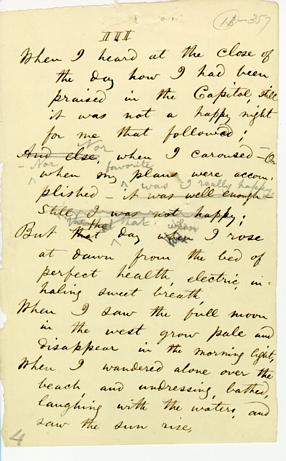 III
When I heard at the close of
the day how I had been
praised in the Capitol, still
it was not a happy night
for me that followed;
Nor
And else, when I caroused — Or
Nor favorite
when my plans were accom-
was I really happy
plished — it was well enough —
Still, I was not happy;
that when
But that day when I rose
at dawn from the bed of
perfect health, electric, in-
haling sweet breath,
When I saw the full moon
in the west grow pale and
disappear in the morning light,
When I wandered alone over the
beach and undressing, bathed,
laughing with the waters, and
saw the sun rise,
4